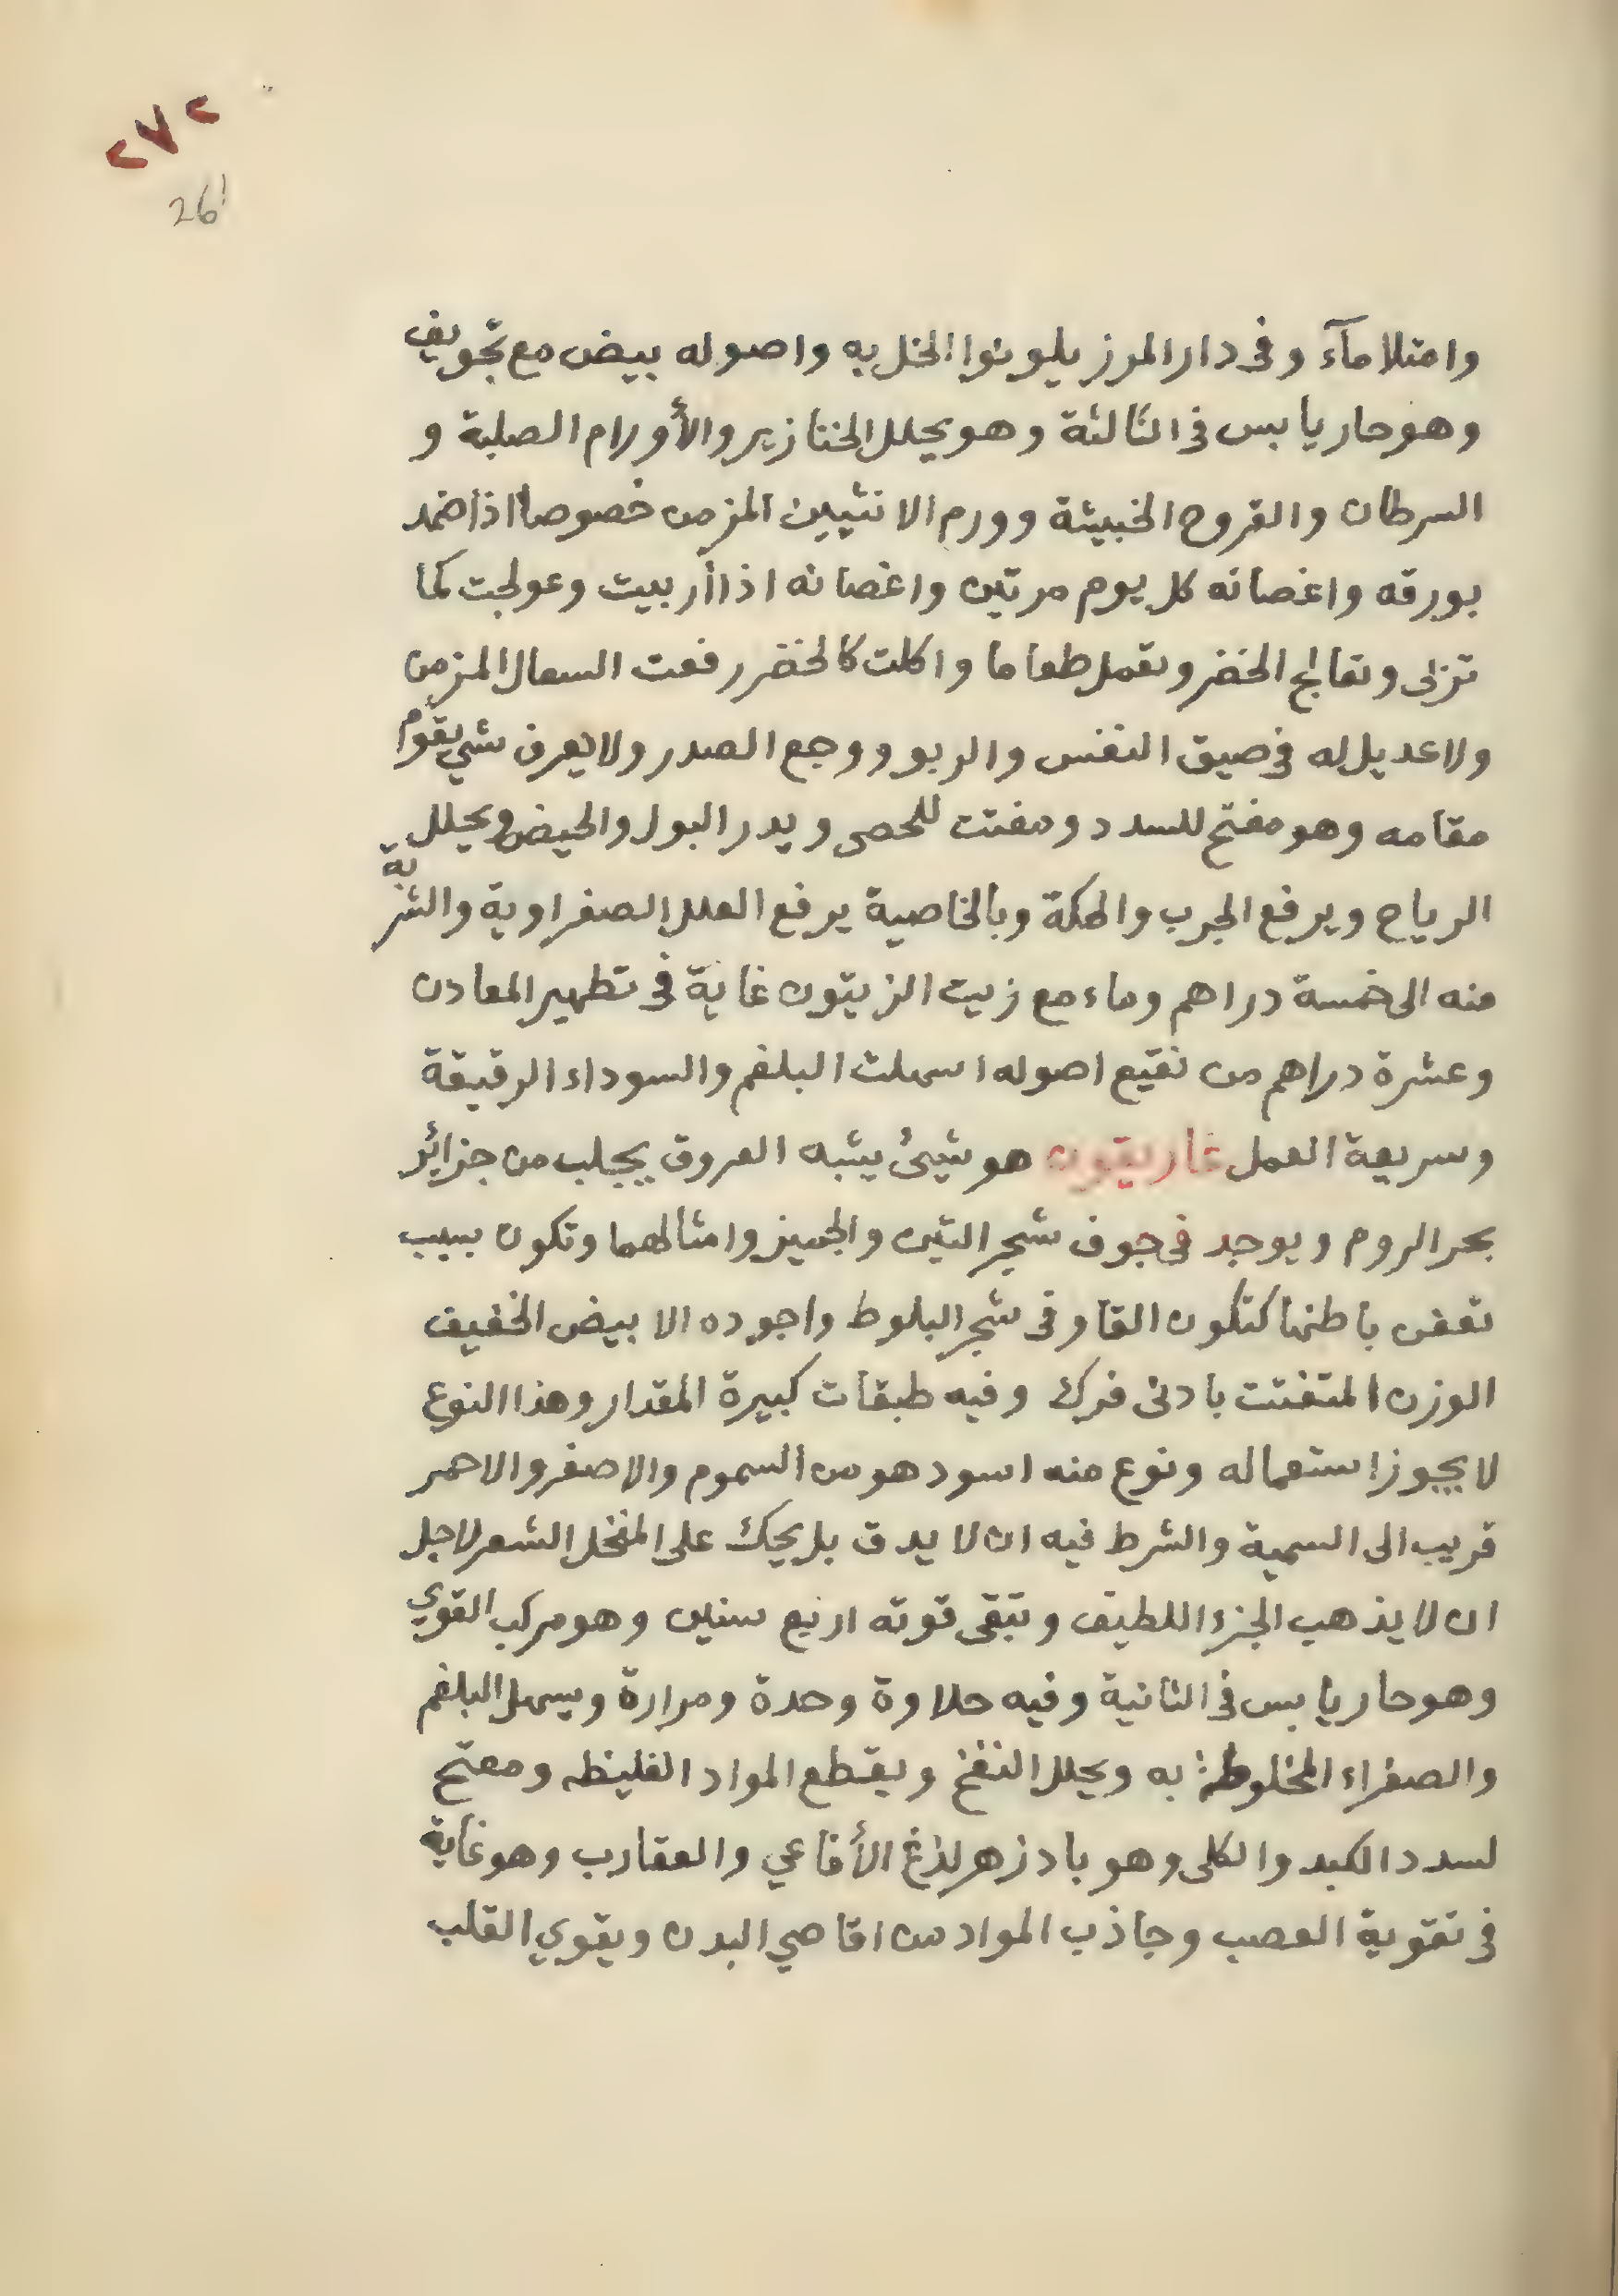 ٢٧٢
26
وامتلا مآء وفى دار المرز يلونوا الخل به واصوله بيض مع تجويف
وهو حار يابس فى الثالثة وهو يحلل الخنازير والأورام الصلبة و
السرطان والقروح الخبيثة وورم الانثيين المزمن خصوصا اذا ضمد
بورقه واغصانه كل يوم مرتين واغصانه اذا أربيت وعولجت كما
تربى وتعالج الخضر وتعمل طعاما واكلت كالخضر رفعت السعال المزمن
ولا عديل له فى ضيق النفس والربو ووجع الصدر ولا يعرف شي يقوم
مقامه وهو مفتح للسدد ومفتت للحصى ويدر البول والحيض ويحلل
الرياح ويرفع الجرب والحكة وبالخاصية يرفع العلل الصفراوية والشربة
منه الى خمسة دراهم وماء مع زيت الزيتون غاية فى تطهير المعادن
وعشرة دراهم من نقيع اصوله اسهلت البلغم والسوداء الرقيقة
وسريعة العمل غاريقون هو شيئ يشبه العروق يجلب من جزائر
بحر الروم ويوجد فى جوف شجر التين والجميز وامثالهما وتكون بسبب
تعفن باطنها كتكون القاو فى شجر البلوط واجوده الابيض الخفيف
الوزن المتفتت بادنى فرك وفيه طبقات كبيرة المقدار وهذا النوع
لا يجوز استعماله ونوع منه اسود هو من السموم والاصفر والاحمر
قريب الى السمية والشرط فيه ان لا يدق بل يحك على المنخل الشعر لاجل
ان لا يذهب الجزء اللطيف وتبقى قوته اربع سنين وهو مركب القوي
وهو حار يابس فى الثانية وفيه حلاوة وحدة ومرارة ويسهل البلغم
والصفراء المخلوطة به ويحلل النفخ ويقطع المواد الغليظه ومفتح
لسدد الكبد والكلى وهو بادزهر لذغ الأفاعي والعقارب وهو غاية
فى تقوية العصب وجاذب المواد من اقاصي البدن ويقوي القلب